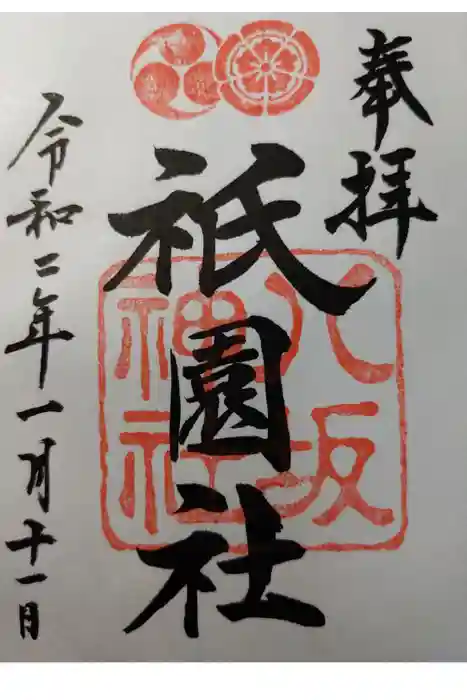 奉拝
祇園社
八坂
神社
令和二年一月十一日